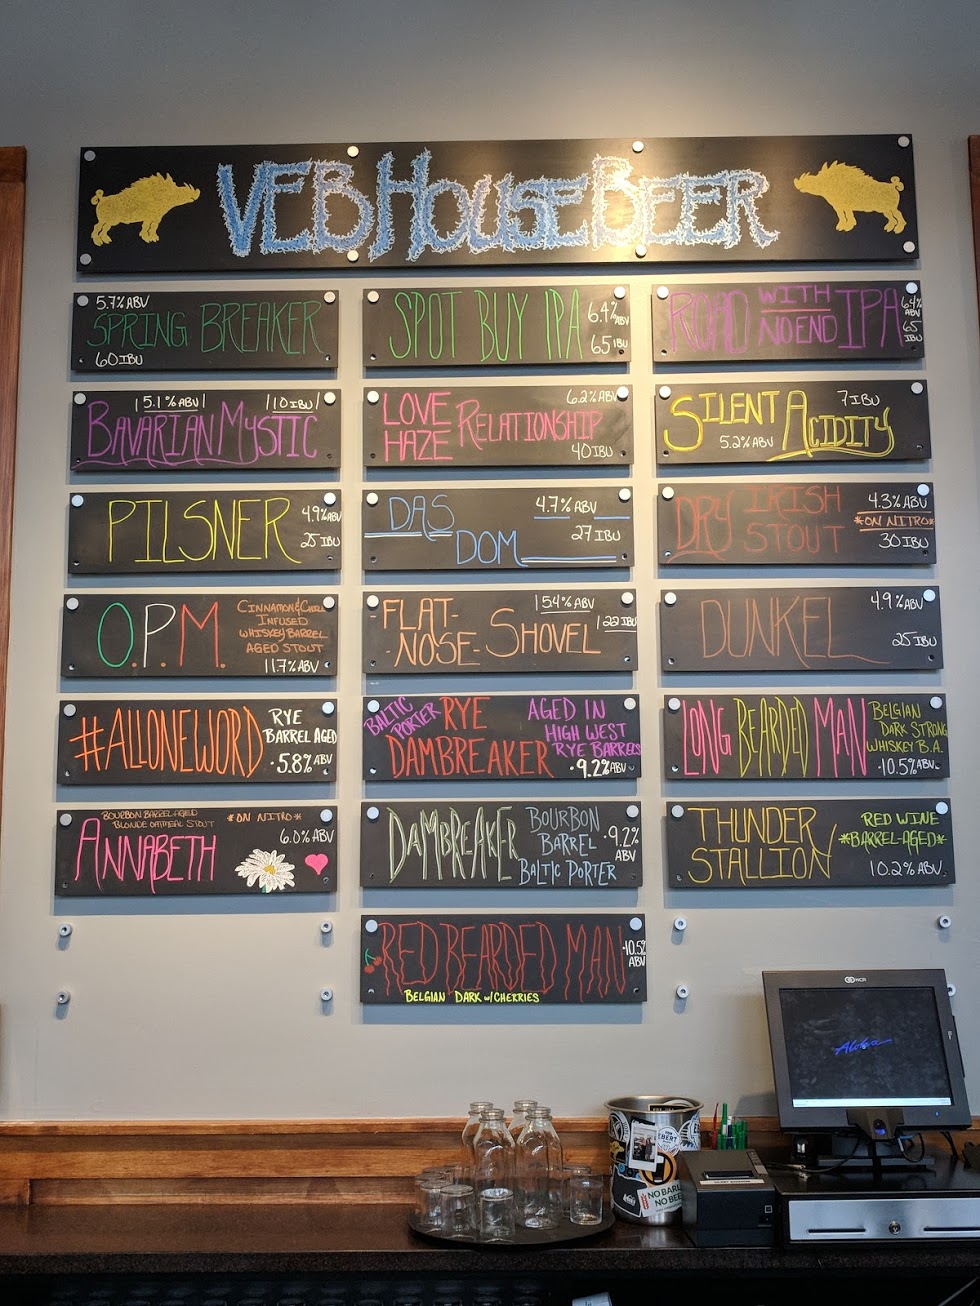 VEB HOUSE BEER
5.7% ABV
SPRING BREAKER
60 IBU
SPOT BUY IPA
6.4% ABV
65 IBU
ROAD WITH NO END IPA
6.4% ABV
65 IBU
5.1% ABV
110 IBU
BAVARIAN MYSTIC
6.2% ABV
LOVE HAZE RELATIONSHIP
40 IBU
7 IBU
SILENT ACIDITY
5.2% ABV
PILSNER
4.9% ABV
25 IBU
DAS
DOM
4.7% ABV
27 IBU
DRY IRISH
STOUT
4.3% ABV
*ON NITRO*
30 IBU
O.P.M.
CINNAMON & CHILI
INFUSED
WHISKEY BARREL
AGED STOUT
11.7% ABV
-FLAT-
-NOSE- SHOVEL
5.4% ABV
22 IBU
DUNKEL
4.9% ABV
25 IBU
#ALLONEWORD
RYE
BARREL AGED
·5.8% ABV
BALTIC
PORTER
RYE
DAMBREAKER
AGED IN
HIGH WEST
RYE BARRELS
·9.2% ABV
LONG BEARDED MAN
BELGIAN
DARK STRONG
WHISKEY B.A.
·10.5% ABV·
BOURBON BARREL AGED
BLONDE OATMEAL STOUT
*ON NITRO*
6.0% ABV
ANNABETH
DAMBREAKER
BOURBON
BARREL
BALTIC PORTER
·9.2%
ABV
THUNDER
STALLION
RED WINE
*BARREL-AGED*
10.2% ABV
RED BEARDED MAN
·10.5%
ABV
BELGIAN DARK w/CHERRIES
NCR
Aloha
NO BARL
NO BEE